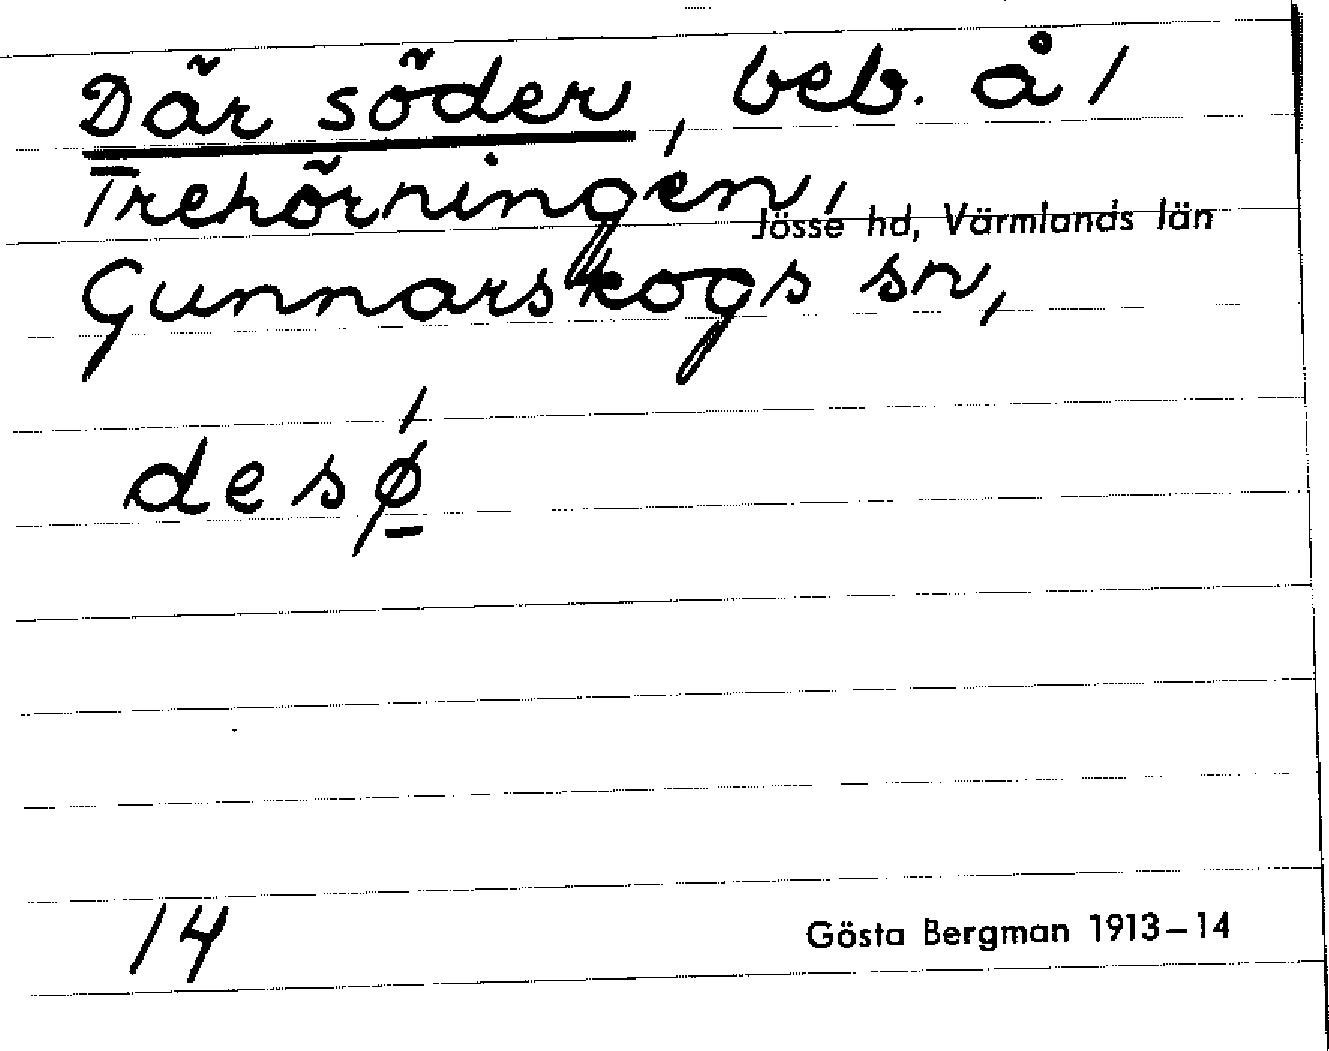 Där söder, beb. å 1
Trehörningen,
Jösse hd, Värmlands län
Gunnarskogs sn,
desø
14
Gösta Bergman 1913–14